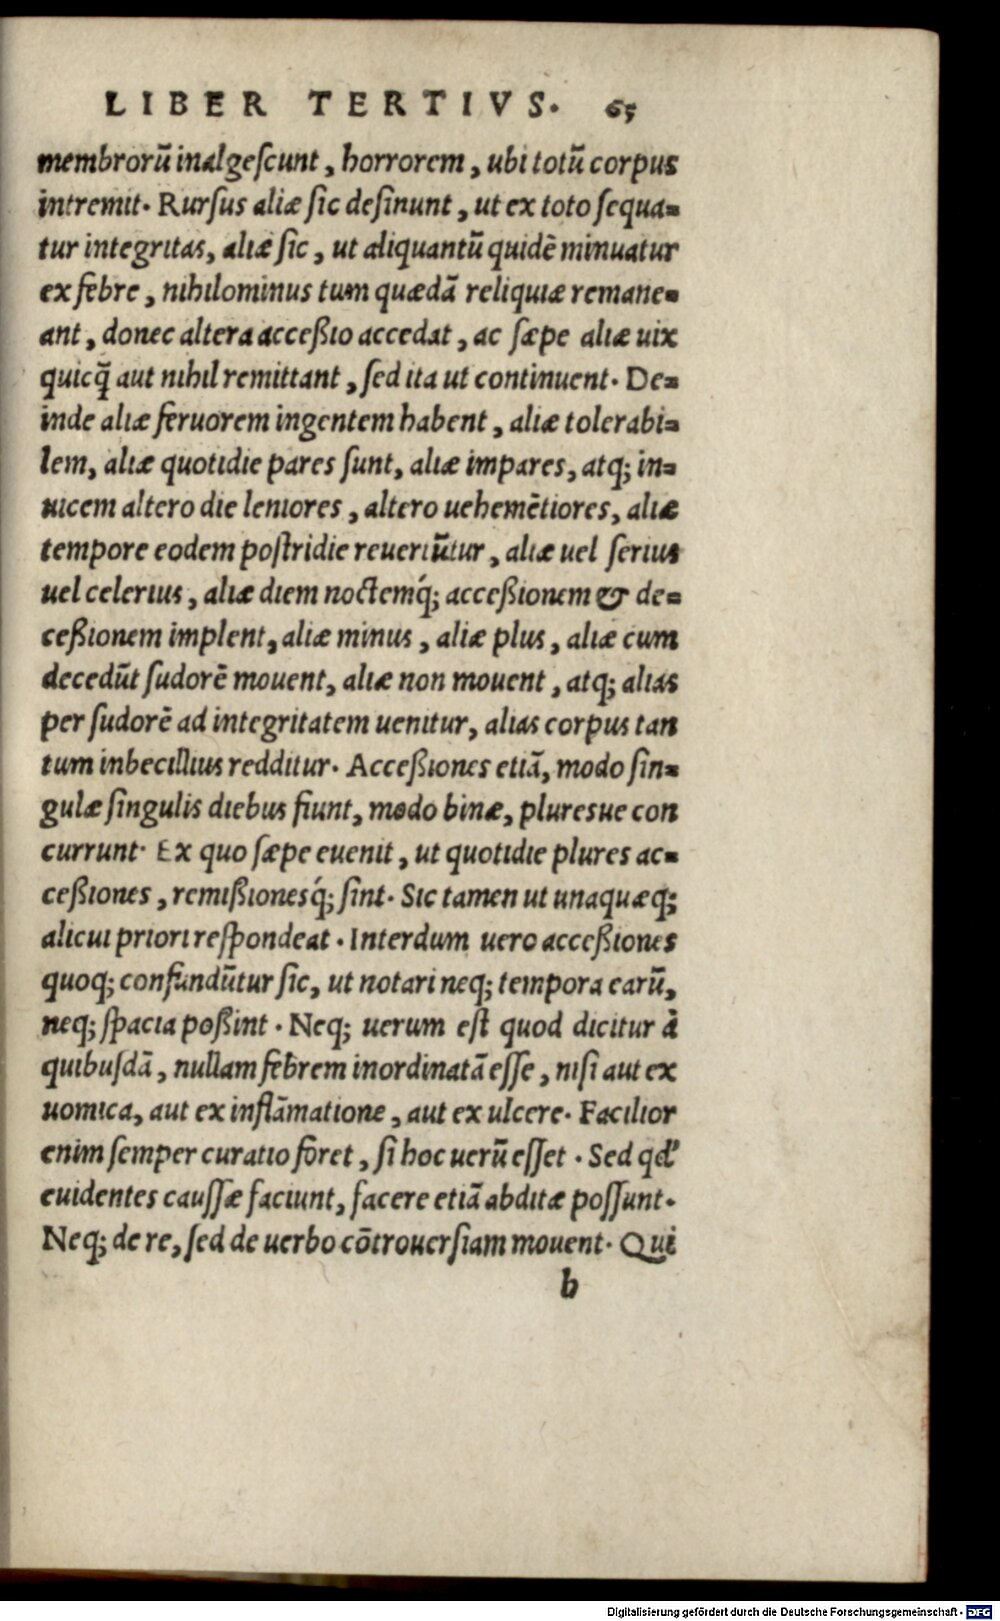 LIBER TERTIVS. 65
membrorū inalgeſcunt, horrorem, ubi totū corpus
intremit. Rurſus aliæ ſic deſinunt, ut ex toto ſequa=
tur integritas, aliæ ſic, ut aliquantū quidē minuatur
ex febre, nihilominus tum quædā reliquiæ remane=
ant, donec altera acceßio accedat, ac ſæpe aliæ uix
quicq̃ aut nihil remittant, ſed ita ut continuent. De=
inde aliæ feruorem ingentem habent, aliæ tolerabi=
lem, aliæ quotidie pares ſunt, aliæ impares, atq; in=
uicem altero die leniores, altero uehemētiores, aliæ
tempore eodem poſtridie reuertūtur, aliæ uel ſerius
uel celerius, aliæ diem noctemq́; acceßionem & de=
ceßionem implent, aliæ minus, aliæ plus, aliæ cum
decedūt ſudorē mouent, aliæ non mouent, atq; alias
per ſudorē ad integritatem uenitur, alias corpus tan
tum inbecillius redditur. Acceßiones etiā, modo ſin=
gulæ ſingulis diebus fiunt, modo binæ, pluresue con
currunt. Ex quo ſæpe euenit, ut quotidie plures ac=
ceßiones, remißionesq́; ſint. Sic tamen ut unaquæq;
alicui priori reſpondeat. Interdum uero acceßiones
quoq; confundūtur ſic, ut notari neq; tempora earū,
neq; ſpacia poßint. Neq; uerum eſt quod dicitur à
quibuſdā, nullam febrem inordinatā eſſe, niſi aut ex
uomica, aut ex inflāmatione, aut ex ulcere. Facilior
enim ſemper curatio foret, ſi hoc uerū eſſet. Sed qd'
euidentes cauſſæ faciunt, facere etiā abditæ poſſunt.
Neq; de re, ſed de uerbo cōtrouerſiam mouent. Qui
b
Digitalisierung gefördert durch die Deutsche Forschungsgemeinschaft - DFG